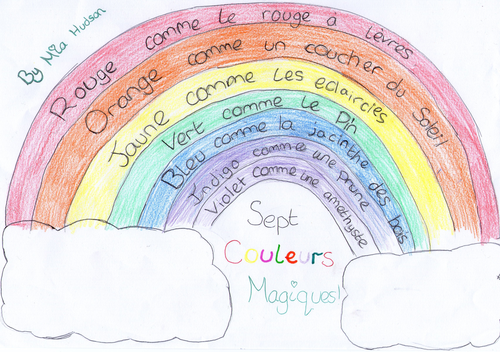 By Mila Hudson
Rouge comme le rouge a lèvres
Orange comme un coucher du Soleil
Jaune comme les eclaircies
Vert comme le Pin
Bleu comme la jacinthe des bois
Indigo comme une prune
Violet comme une amethyste
Sept
Couleurs
Magiques!